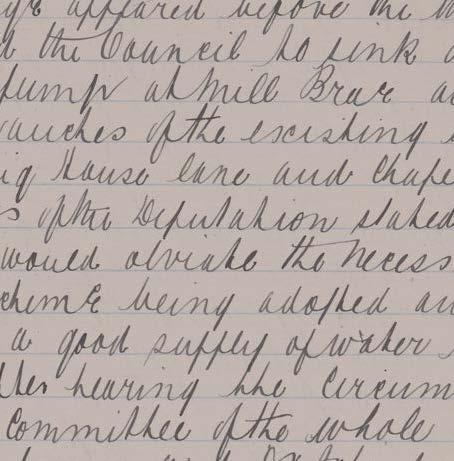 appeared before the
the Council to sink a
pump at Mill Brae a
ranches of the excisting
ig House lane and Chape
s of the Deputation stated
would obviate the necess
cheme being adopted an
a good supply of water
fter hearing the Circum
Committee of the whole